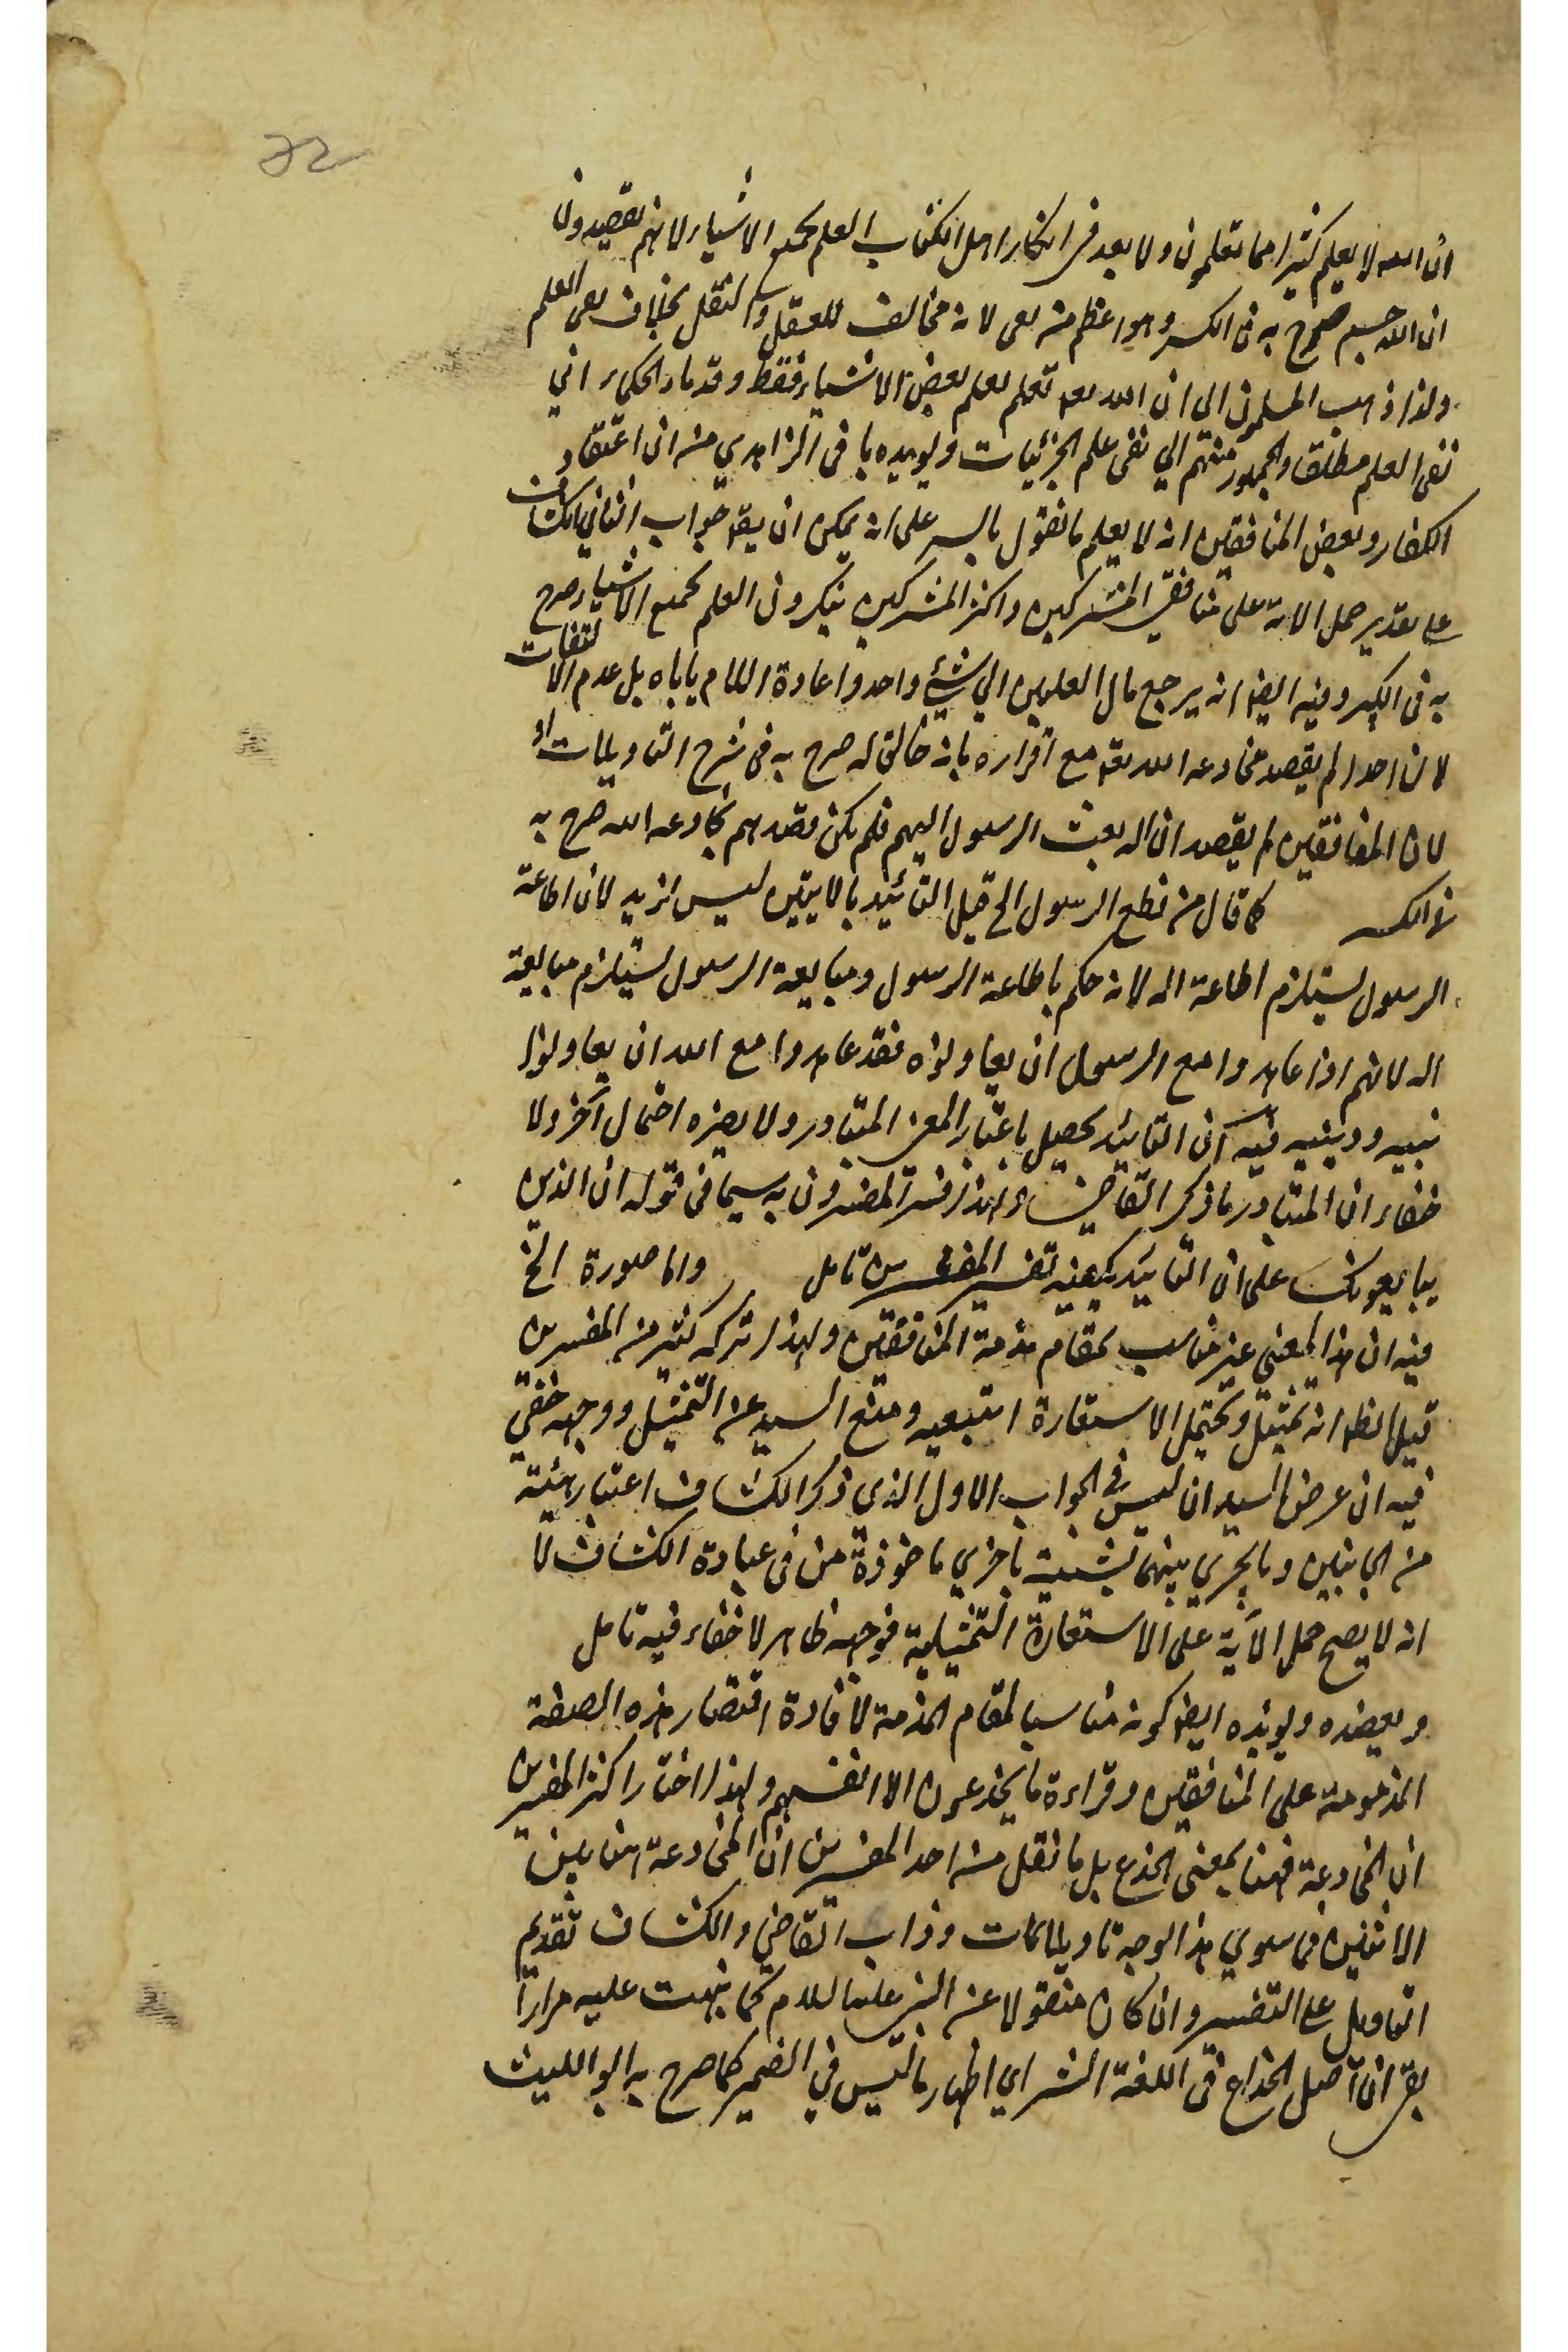 ان الله لا يعلم كثيرا مما تعلمون ولا بعد في انكار اهل الكتاب العلم بجميع الاشياء لانهم يقصدون
ان الله جسم صرح به في الكبير وهو اعظم من نفي لانه مخالف للعقل والنقل بخلاف نفي العلم
ولذا ذهب المسلمون الى ان الله تعالى يعلم بعلم بعض الاشياء فقط وقدماء الحكماء الى
نفي العلم مطلقا والجمهور منهم الي نفى علم الجزئيات ويويده ما في الزاهدي من ان اعتقاد
الكفار وبعض المنافقين انه لا يعلم ما نقول بالسر على انه يمكن ان يقع جواب الثاني الكشاف
على تقدير حمل الاية على منافقي المشركين واكثر المشركين ينكرون العلم بجميع الاشياء صرح
به في الكبير وفيه ايضا انه يرجع مال العلمين الي شيء واحد واعادة اللام ياباه بل عدم الالتفات
لان احدا لم يقصد مخادعه الله تعه مع اقراره بانه خالق له صرح به في شرح التاويلات او
لان المنافقين لم يقصد ان الله بعث الرسول اليهم فلم يكن قصدهم مخادعه الله صرح به
في الكبير كما قال من يطع الرسول الخ قيل التائيد بالايتين ليس ازيد لان اطاعة
الرسول يستلزم اطاعة الله لانه حكم باطاعة الرسول ومبايعة الرسول يستلزم مبايعة
الله لانهم اذا عاهدوا مع الرسول ان يعاونوه فقد عاهدوا مع الله ان يعاونوا
نبيه ودينه فيه ان التائيد يحصل باعتبار المعنى المتبادر ولا يضره احتمال آخر ولا
خفاء ان المتبادر ما ذكر القاضي ولهذا فسر المفسرون به سيما في قوله ان الذين
يبايعونك على ان التائيد يكفيه تفسير المفسرين تامل واما صورة الخ
فيه ان هذا المعنى غير مناسب لمقام مذمة المنافقين ولهذا تركه كثير من المفسرين
قيل الظاهر انه تمثيل ويحتمل الاستعارة التبعيه ومنع السيد عن التمثيل ووجهه خفي
فيه ان عرض السيد ان ليس في الجواب الاول الذي ذكر الكشاف اعتبار هيئة
من الجانبين وما يجري بينهما تشبيه باخري ماخوذة من في عبارة الكشاف لا
انه لا يصح حمل الآية على الاستعارة التمثيلية فوجهه ظاهر لا خفاء فيه تامل
ويعضده ويويده ايضا كونه مناسبا لمقام المذمة لافادة اقتصار هذه الصفة
المذمومة على المنافقين وقراءة ما يخدعون الا انفسهم ولهذا اختار اكثر المفسرين
ان المخادعة ههنا بمعنى الخدع بل ما نقل من احد المفسرين ان المخادعة هنا بين
الاثنين فما سوي هذا الوجه تاويلات وداب القاضي والكشاف تقديم
التاويل على التفسير وان كان منقولا عن النبي عليه السلام كما نبهت عليه مرارا
بقي ان اصل الخداع في اللغة الستر اي اظهار ما ليس في الضمير كما صرح به ابو الليث